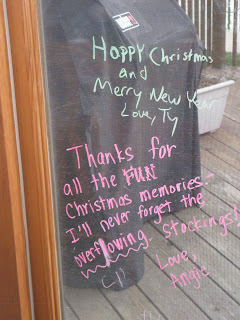 Happy Christmas
and
Merry New Year
Love, Ty
Thanks for
all the FUN
Christmas memories-
I'll never forget the
overflowing stockings!
Love,
Angie